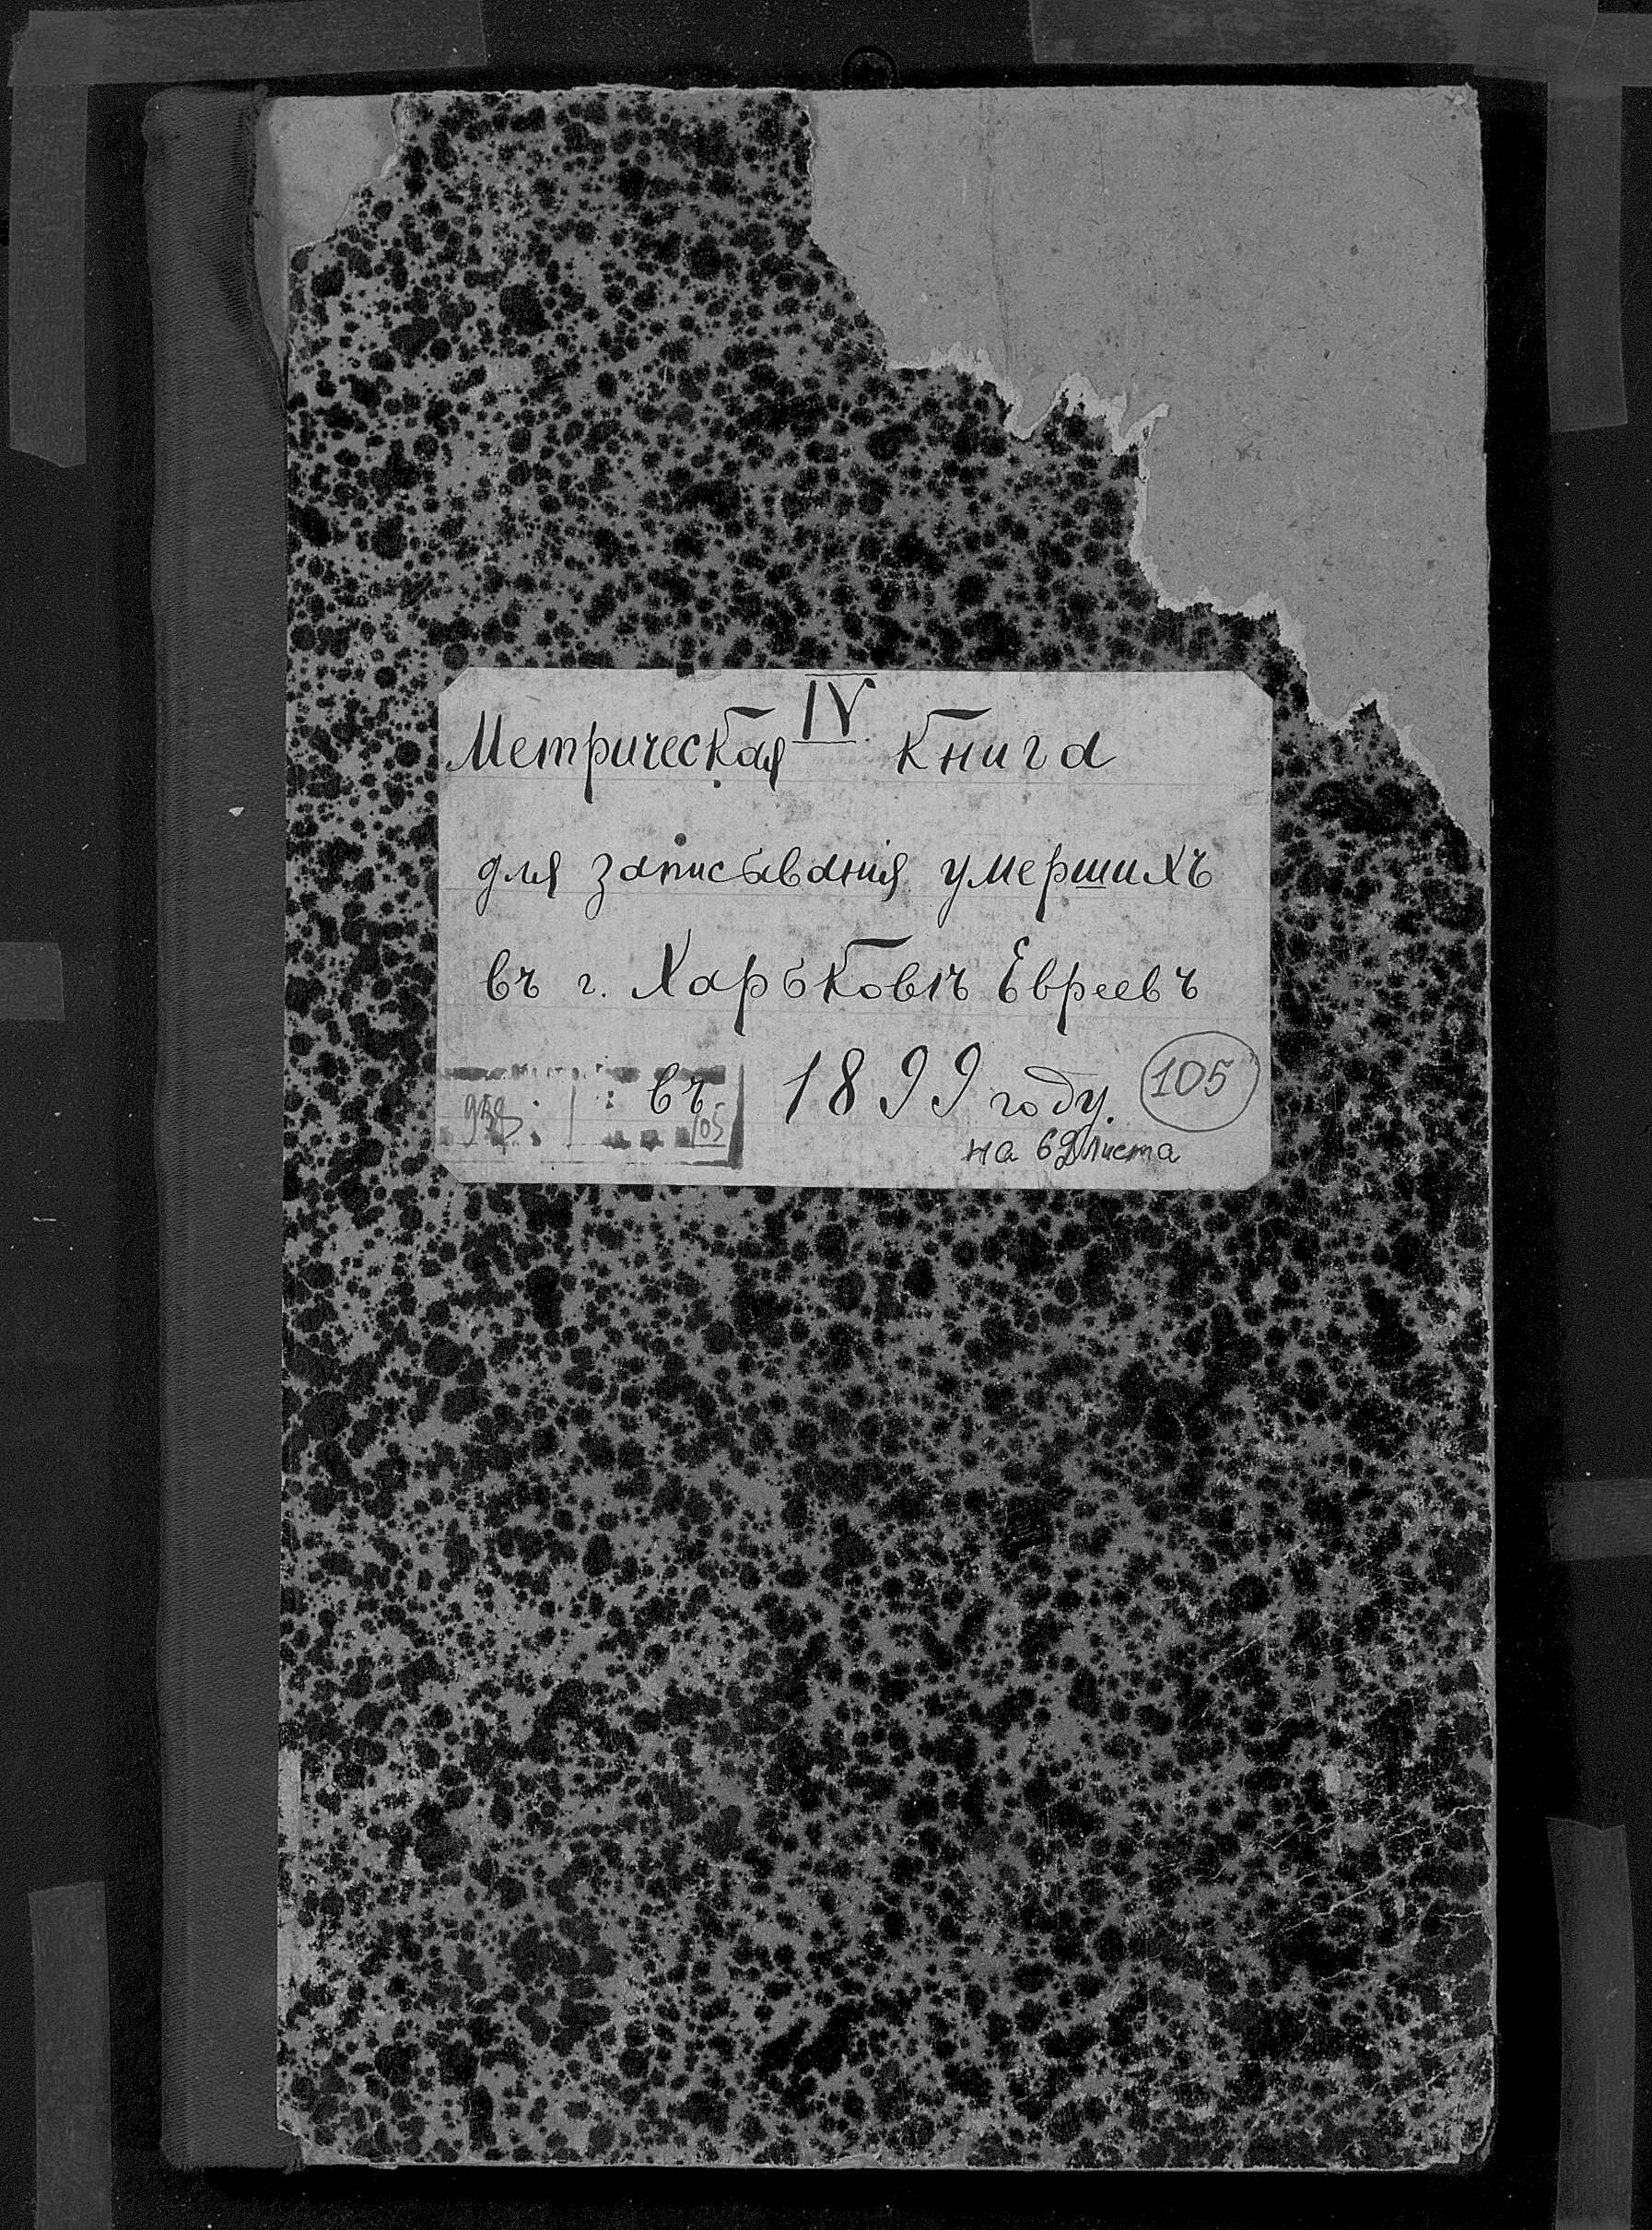 IV
Метрическая Книга
для записыванія умершихъ
въ г. Харьковѣ Евреевъ
въ 1899 году.
105
958 105
на 62 листа